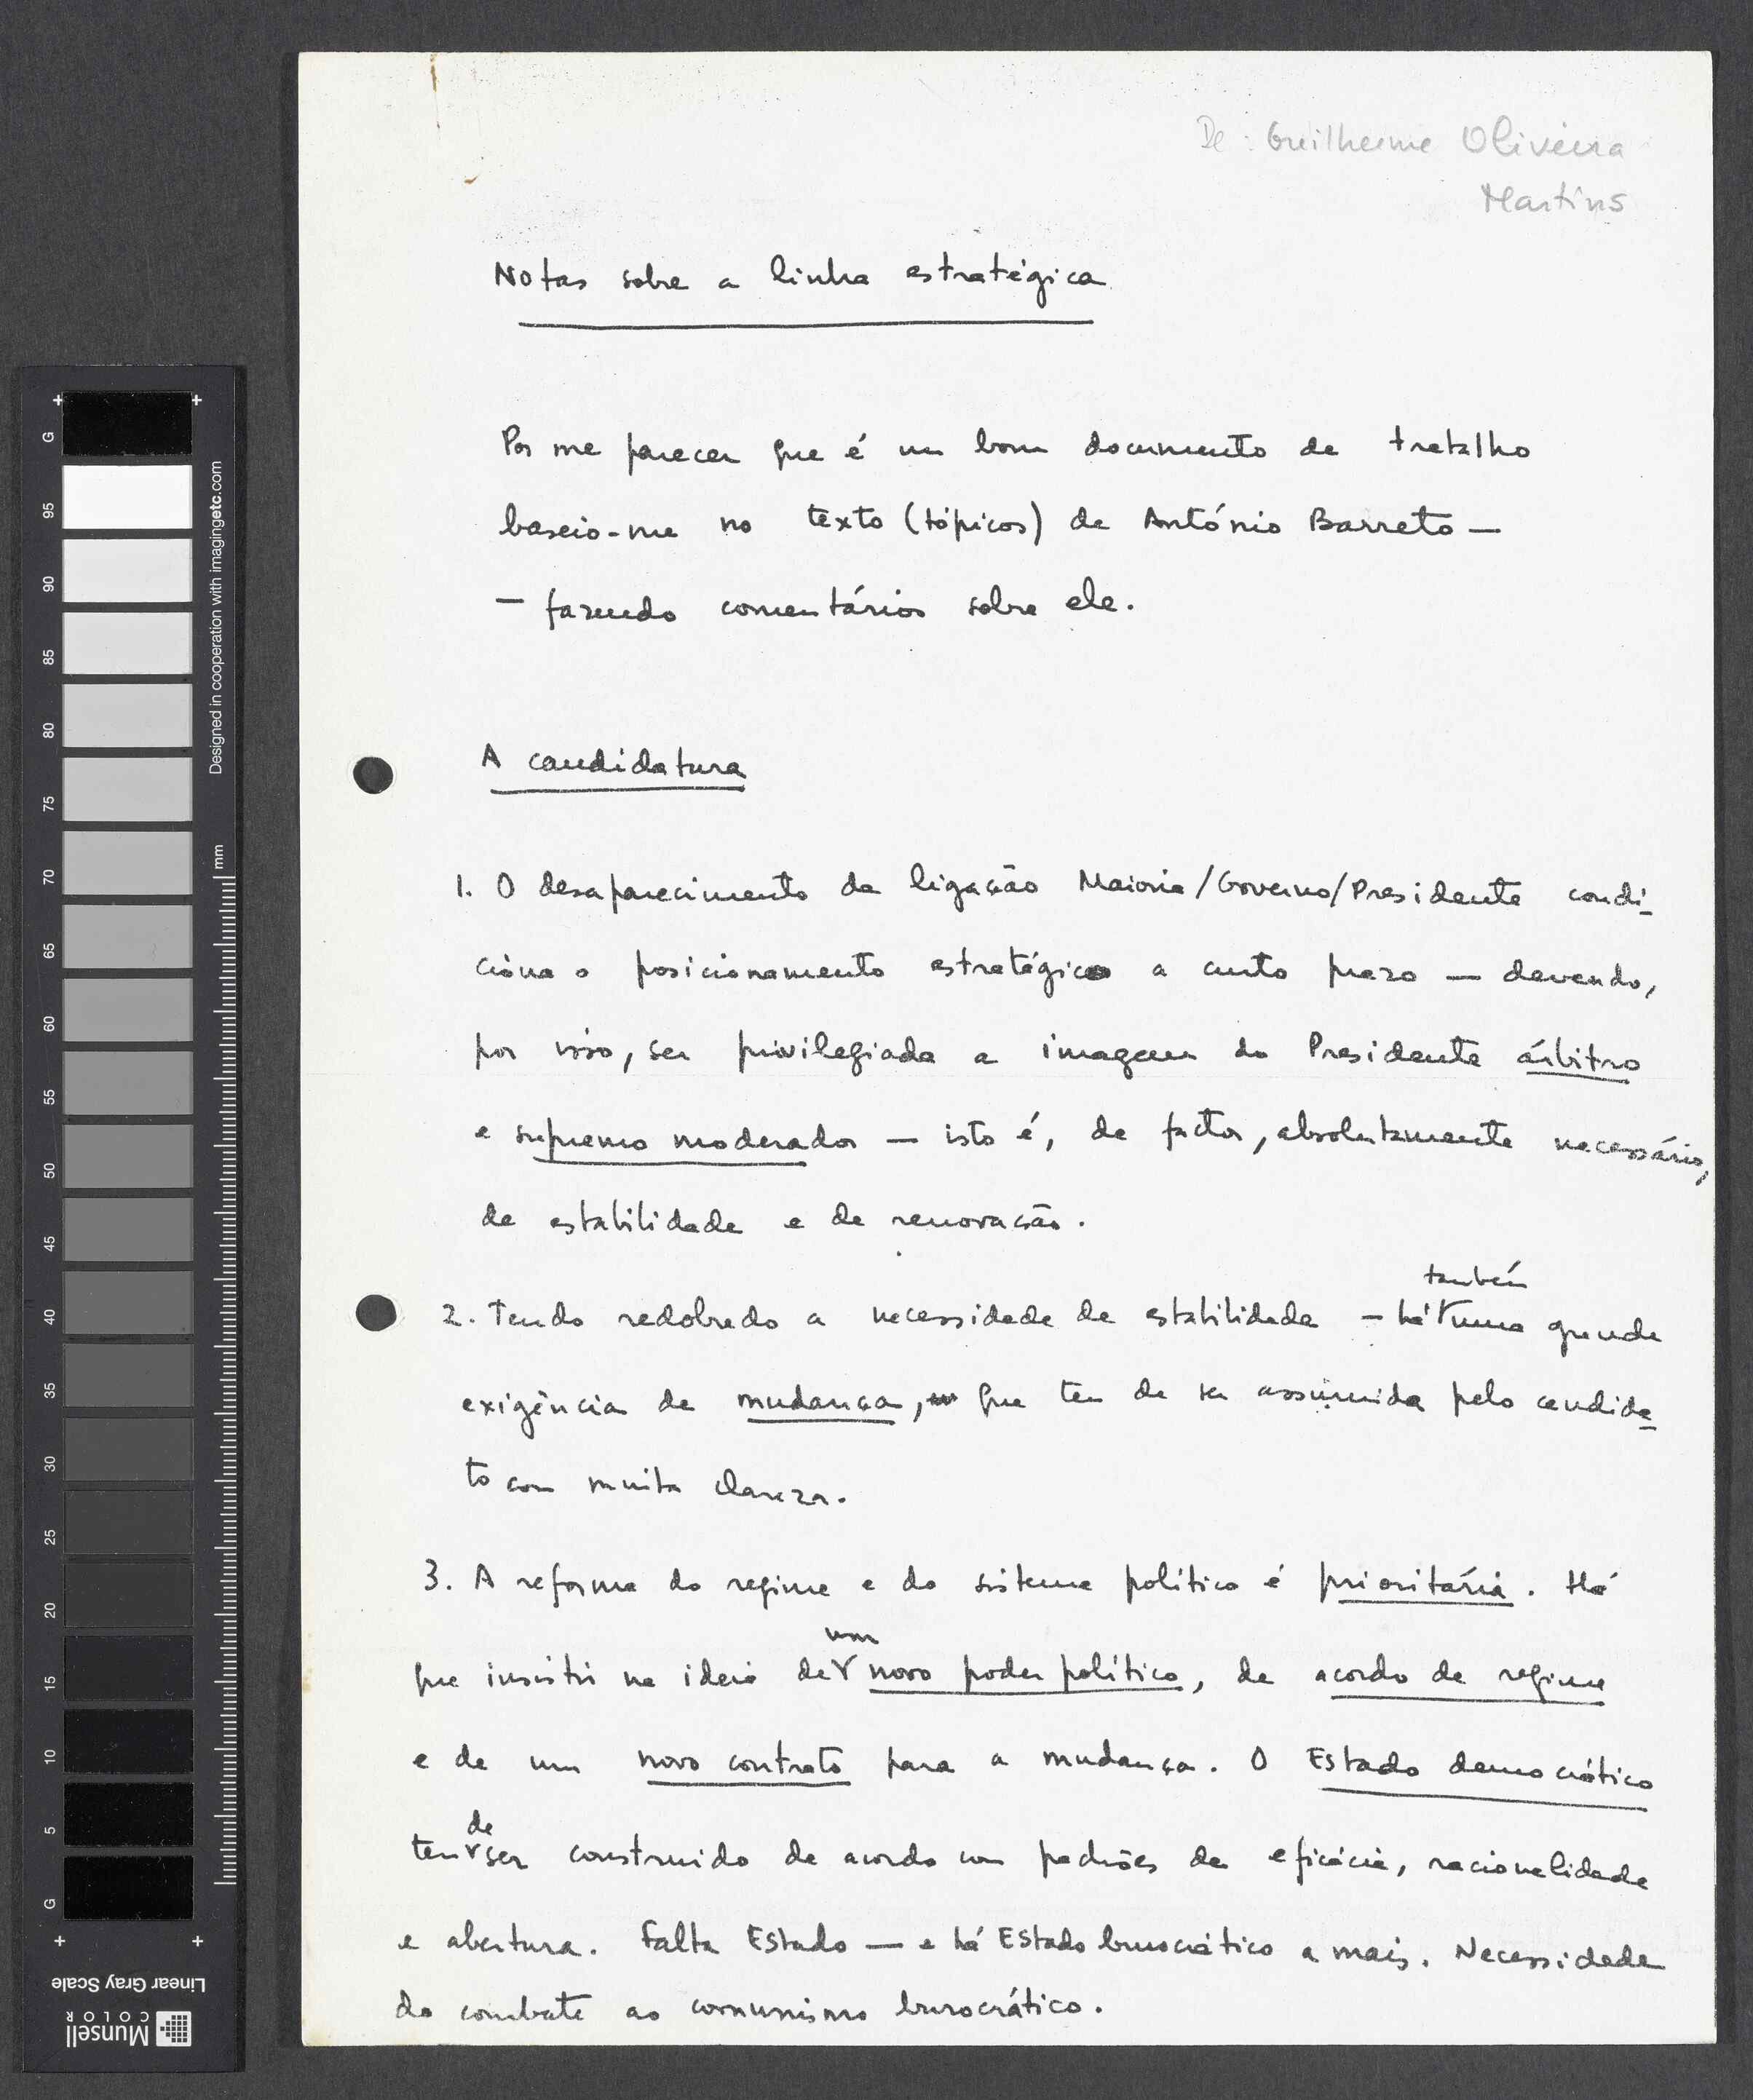 De: Guilherme Oliveira
Martins
Notas sobre a linha estratégica
Por me parecer que é um bom documento de trabalho
baseio-me no texto (tópicos) de António Barreto —
— fazendo comentários sobre ele.
A candidatura
1. O desaparecimento da ligação Maioria/Governo/Presidente condi-
ciona o posicionamento estratégico a curto prazo — devendo,
por isso, ser privilegiada a imagem do Presidente árbitro
e supremo moderador — isto é, de factor, absolutamente necessário,
de estabilidade e de renovação.
também
2. Tendo redobrado a necessidade de estabilidade — há uma grande
exigência de mudança, que tem de ser assumida pelo candida-
to com muita clareza.
3. A reforma do regime e do sistema político é prioritária. Há
um
que insistir na ideia de novo poder político, de acordo de regime
e de um novo contrato para a mudança. O Estado democrático
de
tem ser construido de acordo com padrões de eficácia, racionalidade
e abertura. Falta Estado — e há Estado burocrático a mais. Necessidade
do combate ao comunismo burocrático.
G
95
90
85
80
75
70
65
60
55
50
45
40
35
30
25
20
15
10
5
G
Designed in cooperation with imagingetc.com
mm
Linear Gray Scale
Munsell
COLOR